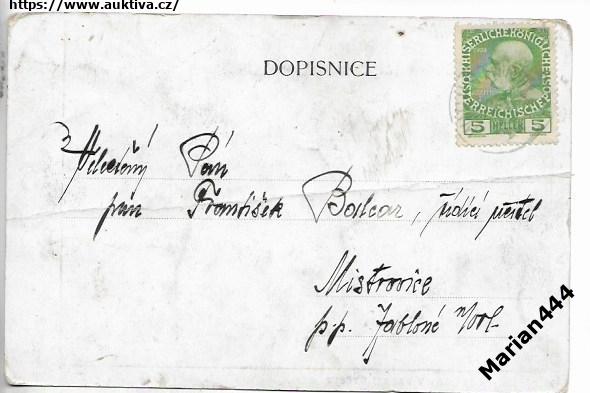 https://www.auktiva.cz/
DOPISNICE
KAISERLICHE KÖNIGLICHE
ÖSTERREICHISCHE
5 HELLER 5
Velectěný Pán
pán František Balcar, řídící učitel
Mistrovice
p.p. Jablonné n/Orl
Marian444